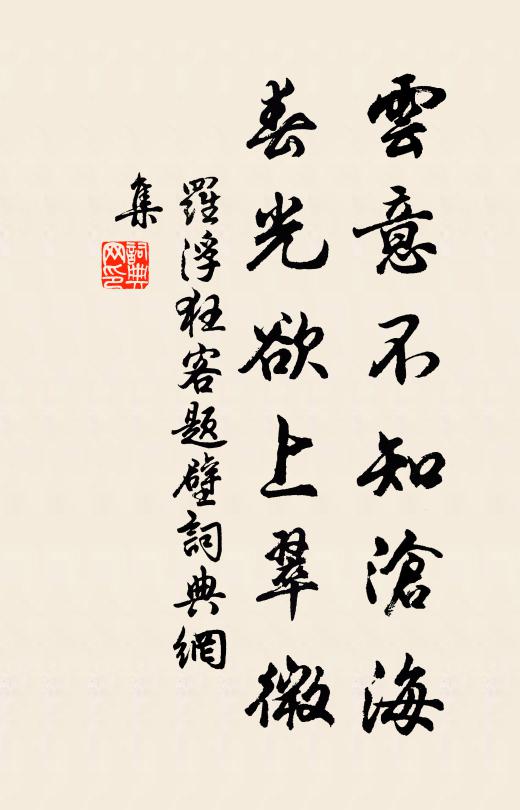 雲意不知滄海
春光欲上翠微
羅浮狂客題壁詞典網
集
詞典
网印